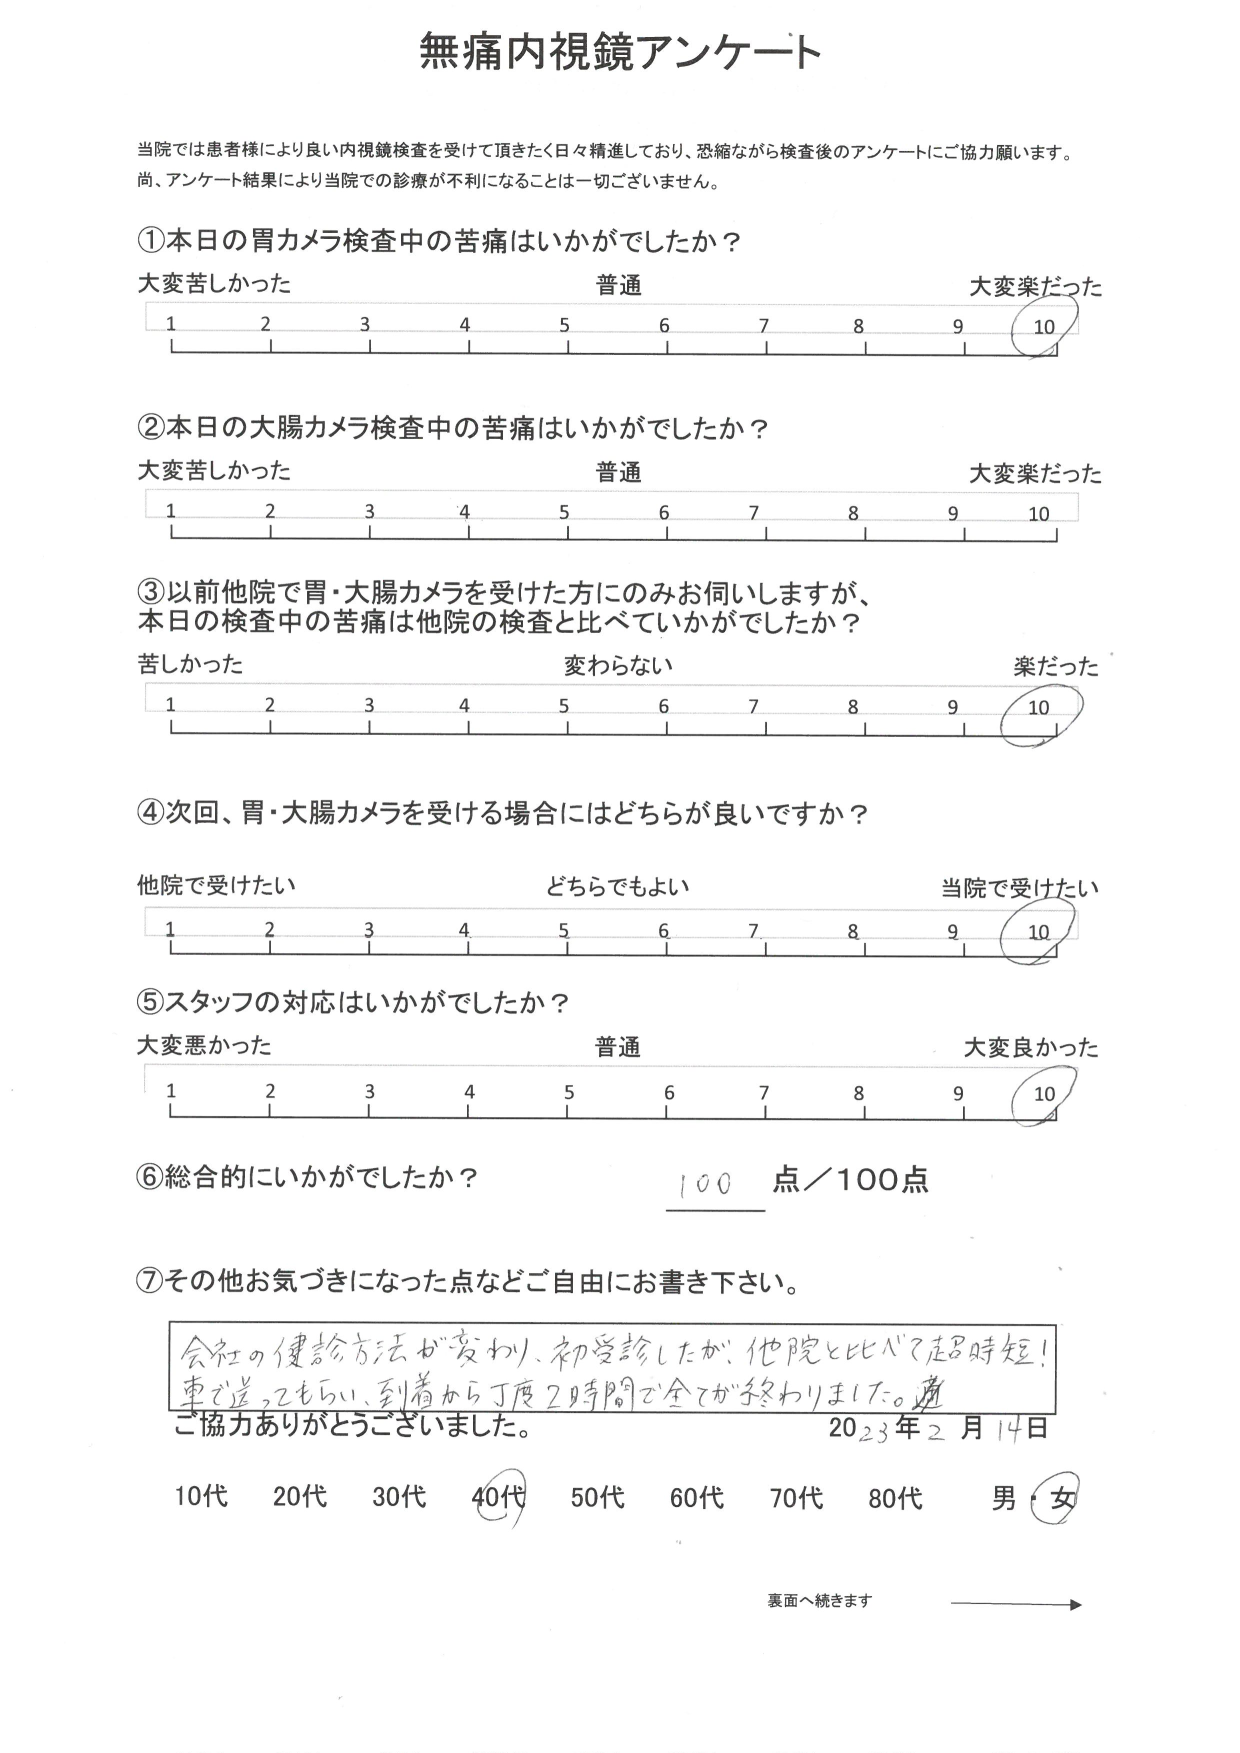 無痛内視鏡アンケート
当院では患者様により良い内視鏡検査を受けて頂きたく日々精進しており、恐縮ながら検査後のアンケートにご協力願います。
尚、アンケート結果により当院での診療が不利になることは一切ございません。
①本日の胃カメラ検査中の苦痛はいかがでしたか？
大変苦しかった 普通 大変楽だった
1 2 3 4 5 6 7 8 9 10
②本日の大腸カメラ検査中の苦痛はいかがでしたか？
大変苦しかった 普通 大変楽だった
1 2 3 4 5 6 7 8 9 10
③以前他院で胃・大腸カメラを受けた方にのみお伺いしますが、
本日の検査中の苦痛は他院の検査と比べていかがでしたか？
苦しかった 変わらない 楽だった
1 2 3 4 5 6 7 8 9 10
④次回、胃・大腸カメラを受ける場合にはどちらが良いですか？
他院で受けたい どちらでもよい 当院で受けたい
1 2 3 4 5 6 7 8 9 10
⑤スタッフの対応はいかがでしたか？
大変悪かった 普通 大変良かった
1 2 3 4 5 6 7 8 9 10
⑥総合的にいかがでしたか？ 100 点／100点
⑦その他お気づきになった点などご自由にお書き下さい。
会社の健診方法が変わり、初受診したが、他院と比べて超時短！
車で送ってもらい、到着から丁度2時間で全てが終わりました。
ご協力ありがとうございました。 2023年2月14日
10代 20代 30代 40代 50代 60代 70代 80代 男・女
裏面へ続きます